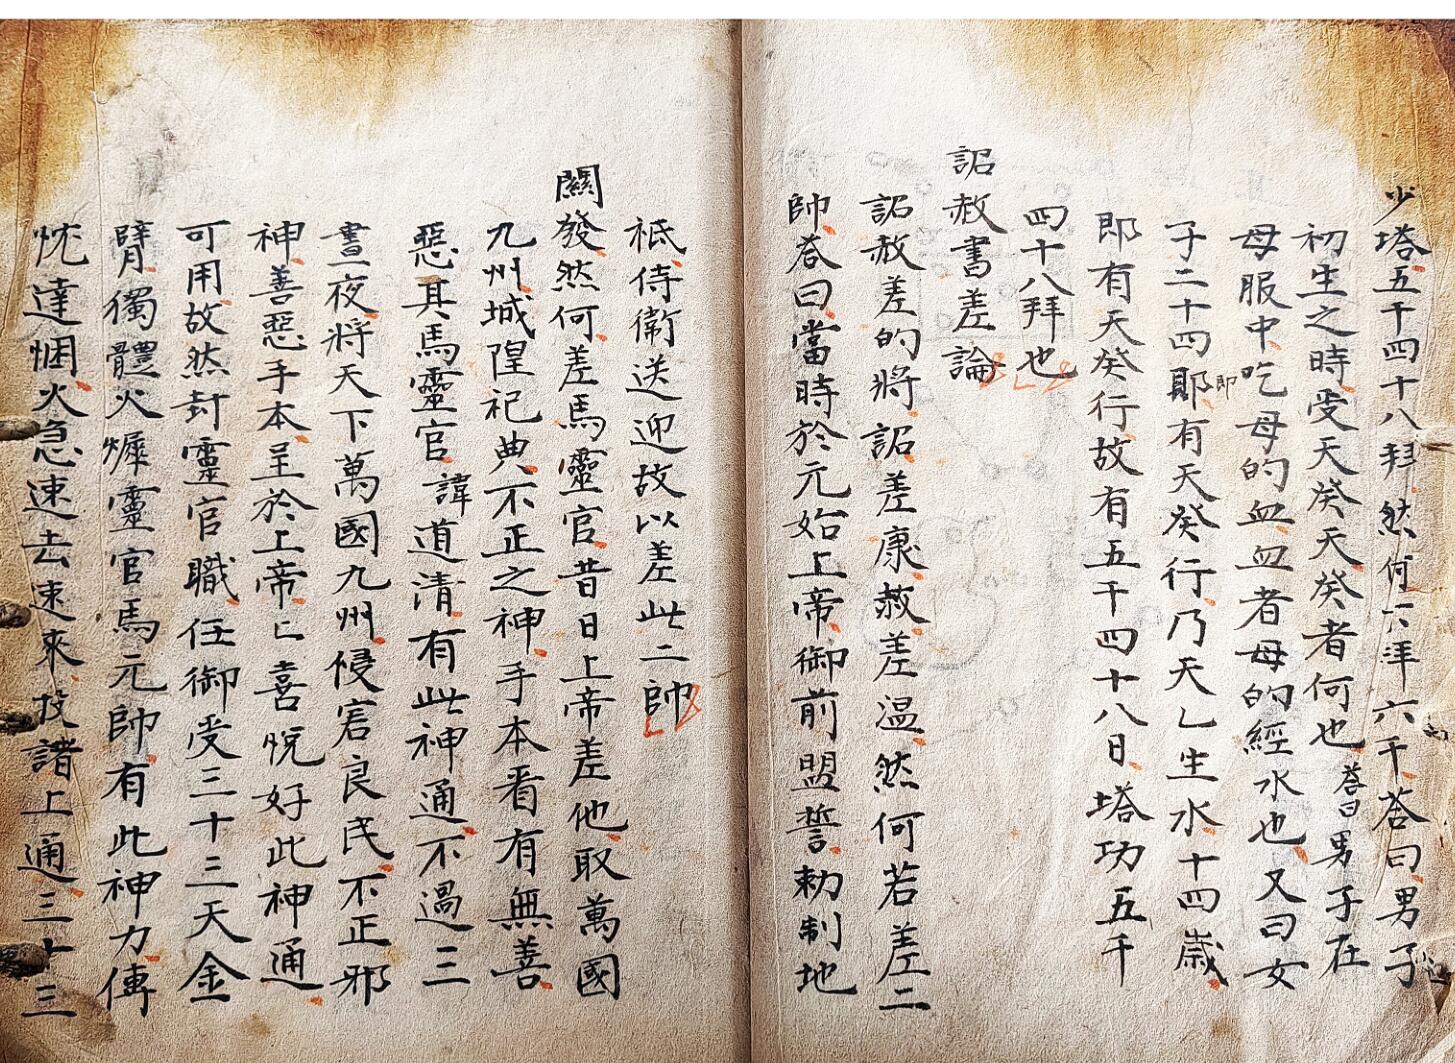 少塔五千四十八拜然何不拜六千荅曰男子
初生之時受天癸天癸者何也荅曰男子在
母服中吃母的血血者母的經水也又曰女
子二十四即有天癸行乃天乙生水十四歲
即有天癸行故有五千四十八日塔功五千
四十八拜也
詔赦書差論
詔赦差的將詔差康赦差温然何若差二
帥荅曰當時於元始上帝御前盟誓勅制地
祇侍衛送迎故以差此二帥
關發然何差馬靈官昔日上帝差他取萬國
九州城隍祀典不正之神手本看有無善
惡其馬靈官諱道清有此神通不過三
晝夜將天下萬國九州侵害良民不正邪
神善惡手本呈於上帝亡喜悅好此神通
可用故然封靈官職任御受三十三天金
臂獨體火犀靈官馬元帥有此神力傳
忱達悃火急速去速來投諸上通三十三